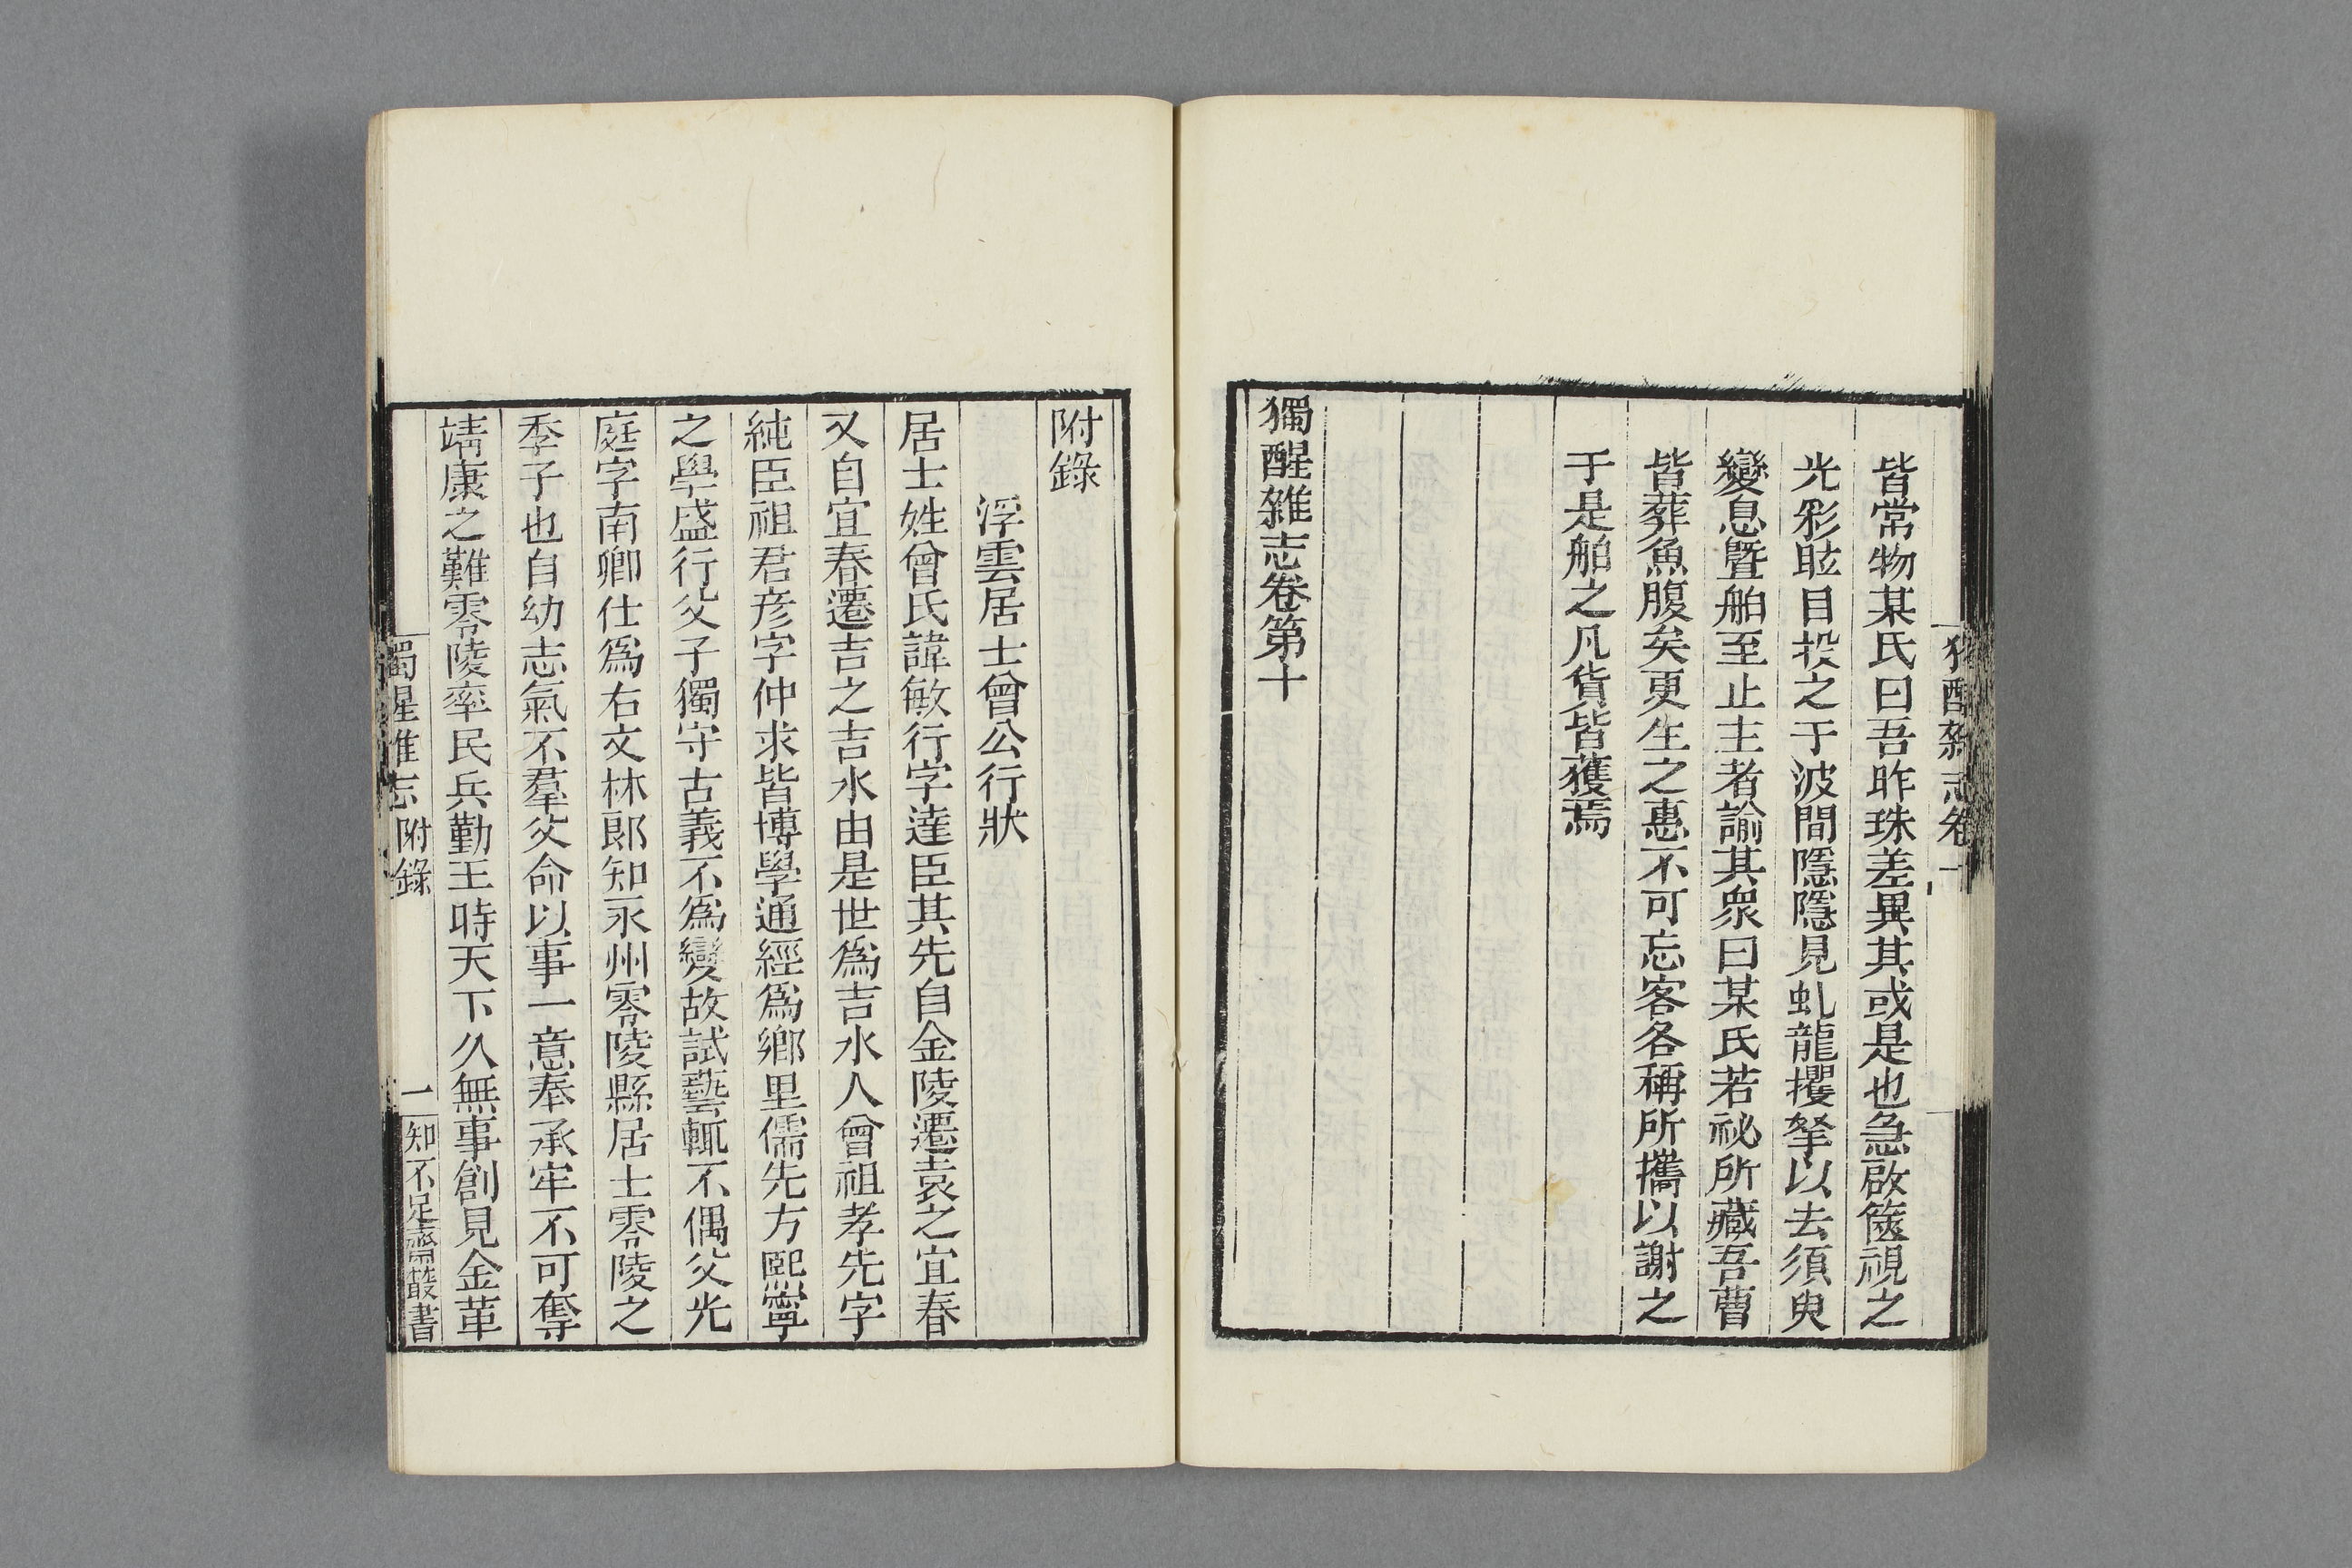 皆常物某氏曰吾昨珠差異其或是也急啟篋視之
光彩眩目投之于波間隱隱見虬龍攫拏以去須臾
變息曁舶至止主者諭其衆曰某氏若祕所藏吾曹
皆葬魚腹矣更生之惠不可忘客各稱所攜以謝之
于是舶之凡貨皆獲焉
獨醒雜志卷第十
附錄
浮雲居士曾公行狀
居士姓曾氏諱敏行字達臣其先自金陵遷袁之宜春
又自宜春遷吉之吉水由是世爲吉水人曾祖孝先字
純臣祖君彦字仲求皆博學通經爲鄉里儒先方熙寧
之學盛行父子獨守古義不爲變故試藝輒不偶父光
庭字南卿仕爲右文林郎知永州零陵縣居士零陵之
季子也自幼志氣不羣父命以事一意奉承牢不可奪
靖康之難零陵率民兵勤王時天下久無事創見金革
獨醒雜志 附錄 一 知不足齋叢書